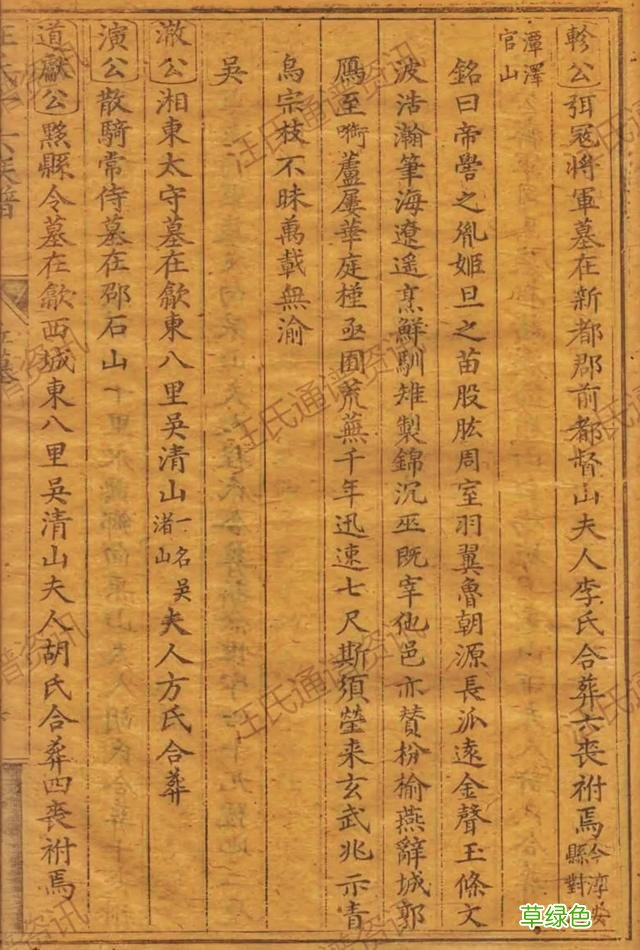 軫公弭冠將軍墓在新都郡前都督山夫人李氏合葬六喪祔焉今淳安縣對
潭澤官山
銘曰帝嚳之胤姬旦之苗股肱周室羽翼魯朝源長派遠金聲玉條文
波浩瀚筆海遼遥烹鮮馴雉製錦沉巫既宰他邑亦贊枌榆燕辭城郭
鴈至蘆屢華庭槿亟園荒蕪千年迅速七尺斯須塋来玄武兆示青
烏宗枝不昧萬載無渝
吳
澈公湘東太守墓在歙東八里吳清山一名吳渚山夫人方氏合葬
演公散騎常侍墓在邵石山
道獻公黟縣令墓在歙西城東八里吳清山夫人胡氏合葬四喪祔焉
汪氏通譜资讯
草绿色